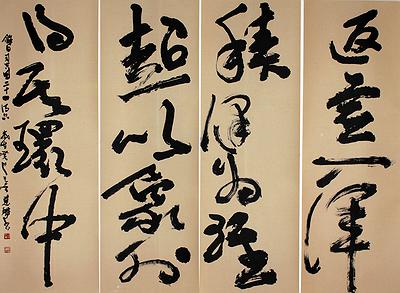 返虛入渾
積健為雄
超以象外
得其環中
錄司空圖二十四詩品